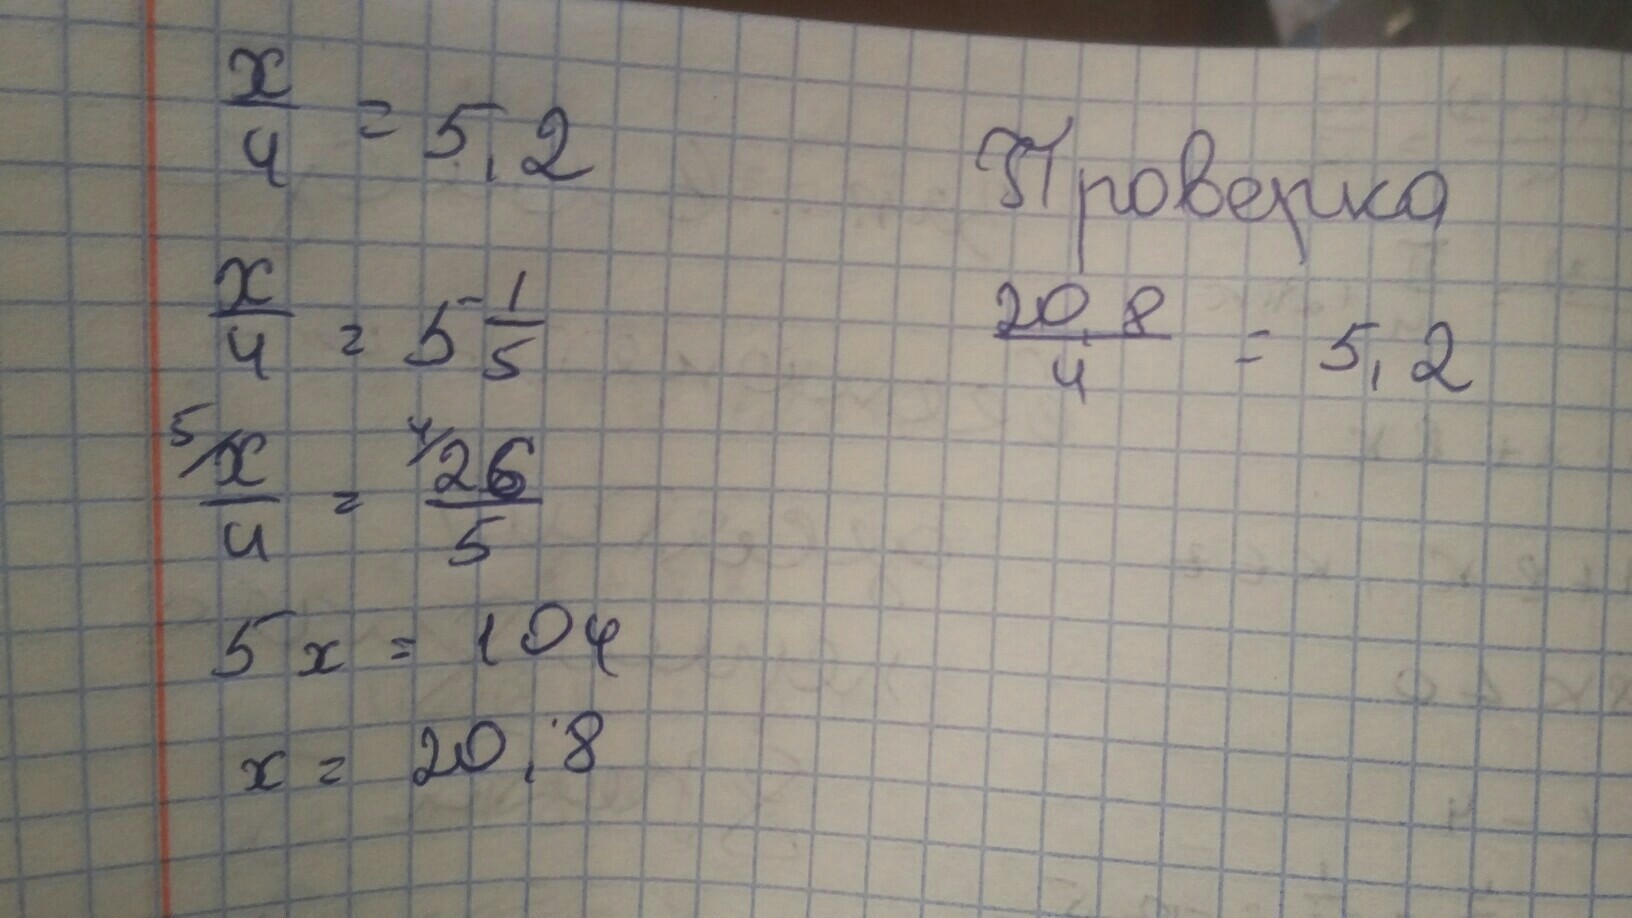 x/4 = 5,2
x/4 = 5 1/5
5/ x/4 = 4/ 26/5
5x = 104
x = 20,8
Проверка
20,8/4 = 5,2